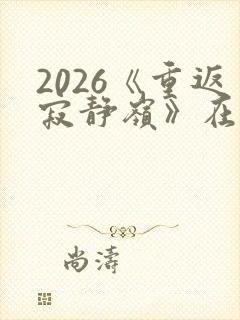 2026《重返
寂静嶺》在
尚濤